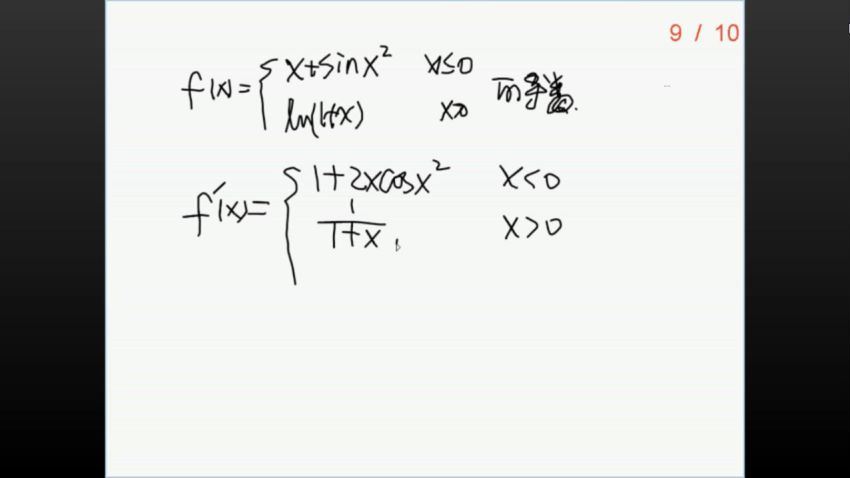 9 / 10
f(x) = { x+sinx² x≤0
ln(1+x) x>0
f'(x) = { 1+2xcosx² x<0
1/(1+x) x>0